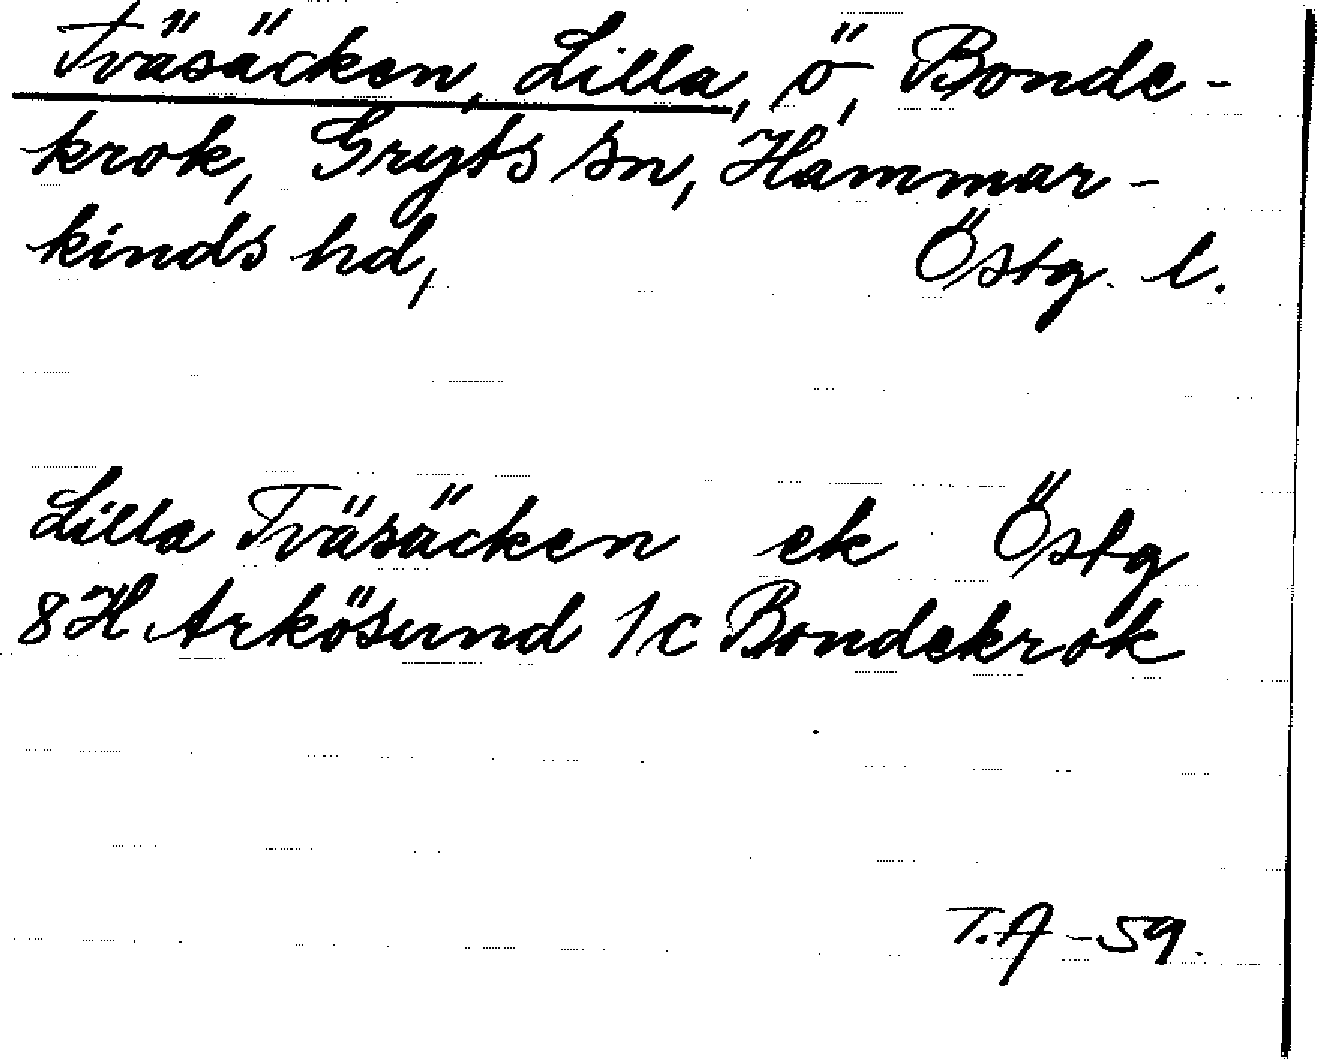 Tväsäcken, Lilla, ö, Bonde-
krok, Gryts sn, Hammar-
kinds hd, Östg. l.
Lilla Tväsäcken ek Östg
8H Arkösund 1c Bondekrok
T.A -59.